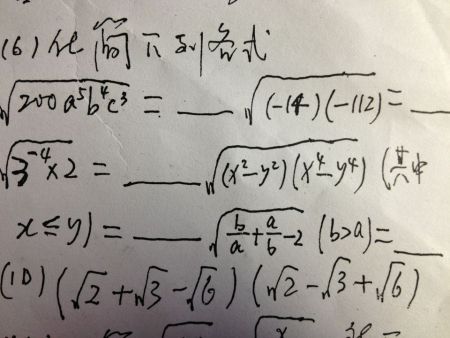 (6) 化简下列各式
√(200a⁵b⁴c³) = ___ √((-14)(-112)) = ___
√(3⁻⁴×2) = ___ √((x²-y²)(x⁴-y⁴)) (其中
x≤y) = ___ √(b/a + a/b - 2) (b>a) = ___
(10) (√2+√3-√6)(√2-√3+√6)